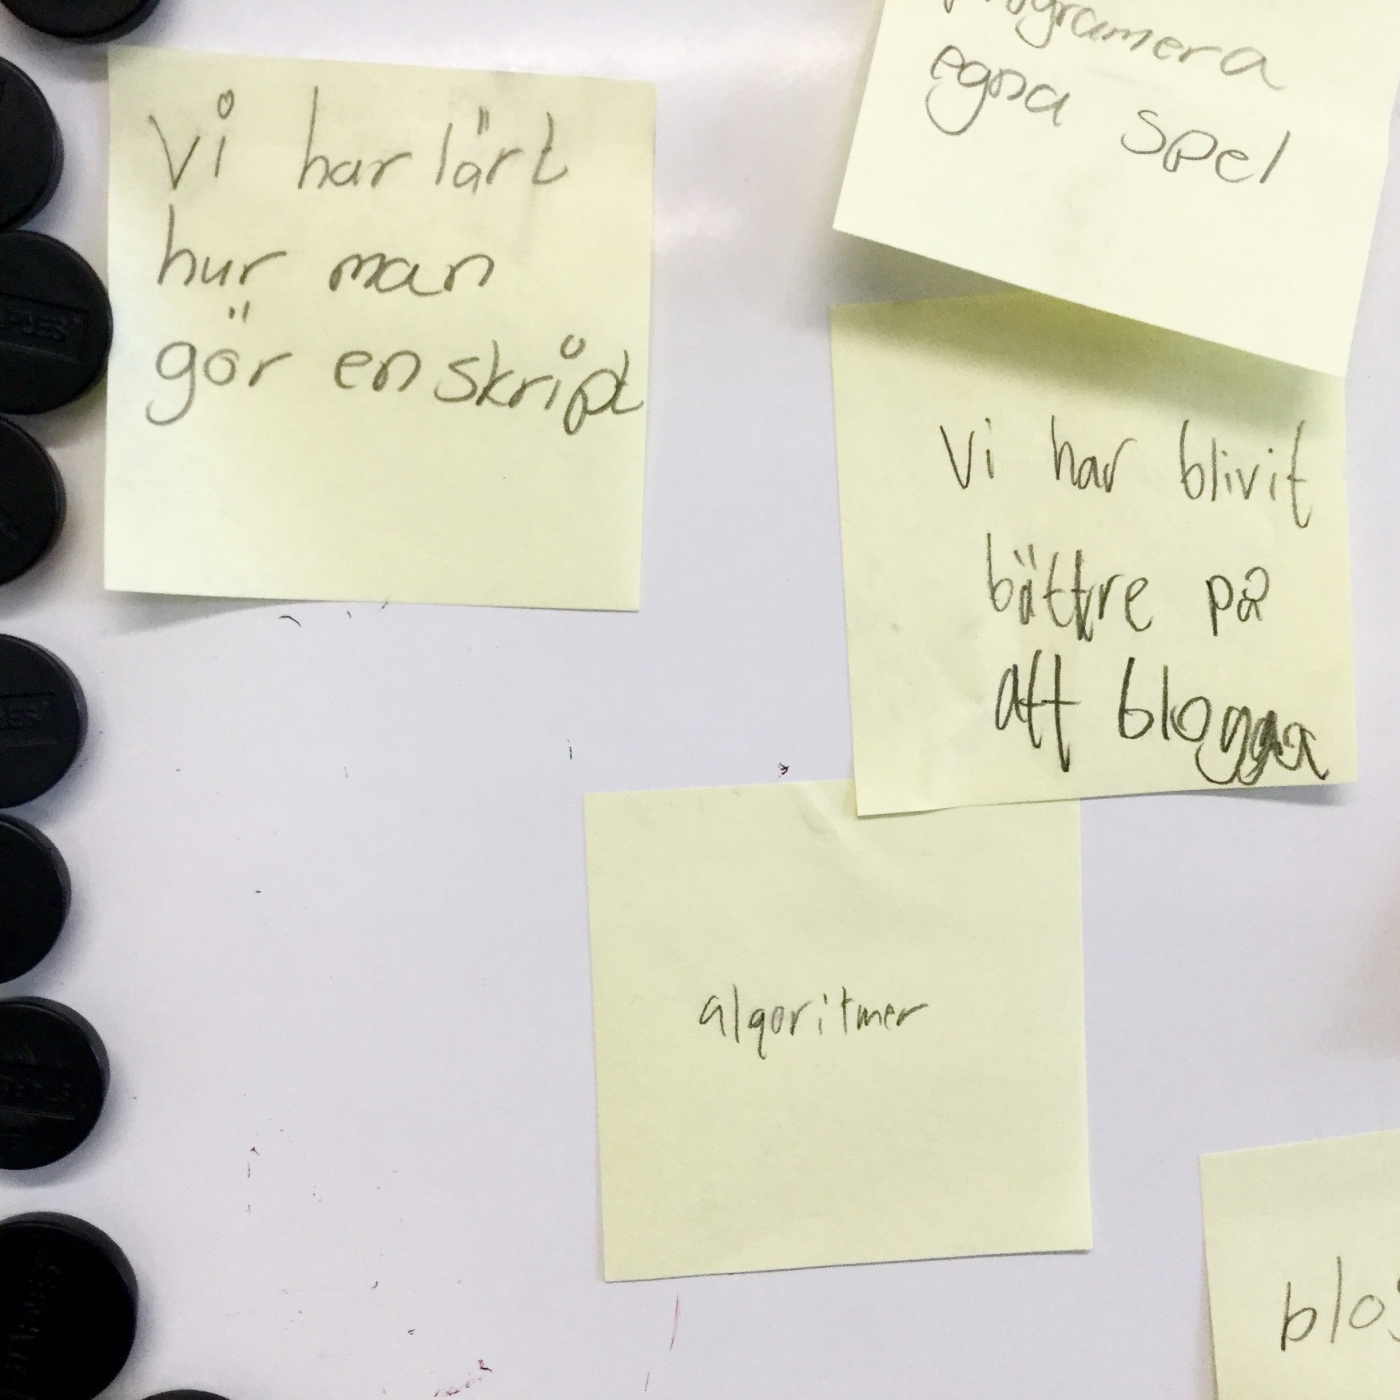 Vi har lärt
hur man
gör en skript
programera
egna spel
Vi har blivit
bättre på
att blogga
algoritmer